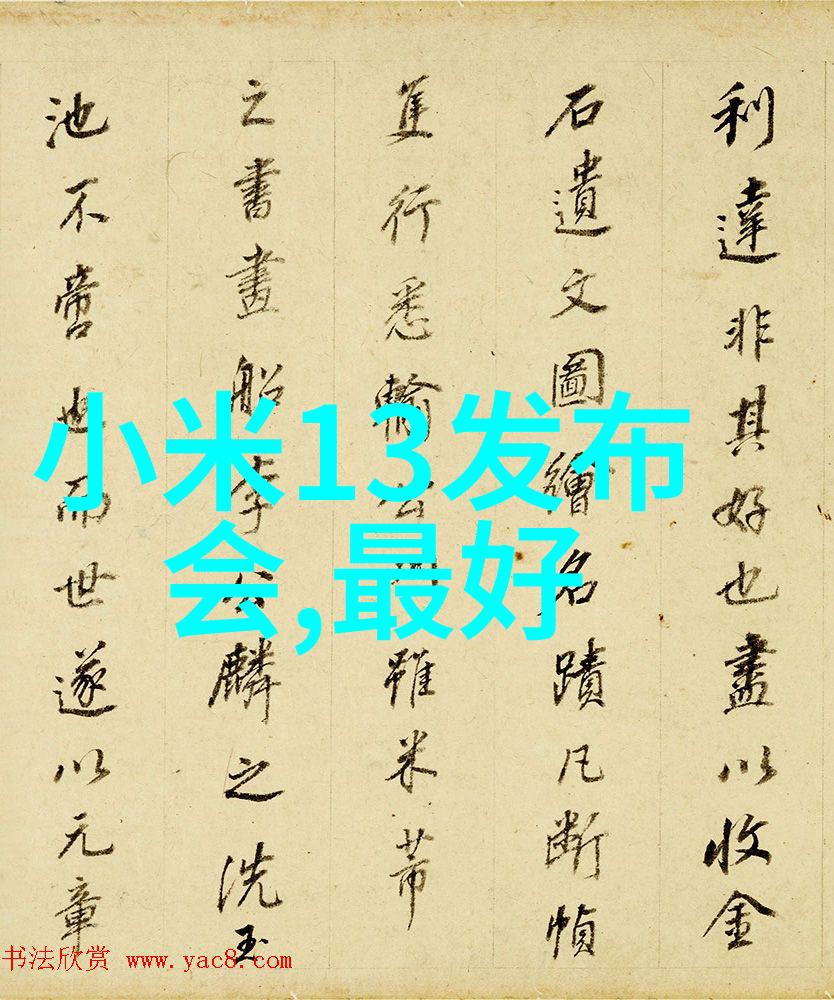 利達非其好也盡以收金
石遺文圖繪名蹟凡断幀
隻行悉輸公雖米芾
之書畫船李公麟之洗玉
池不啻也而世遂以元章
小米13发布
会,最好
书法欣赏 www.yac8.com